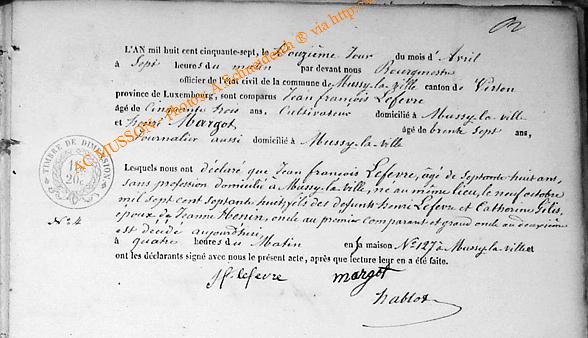 L'AN mil huit cent cinquante-sept, le Douzième Jour du mois d'Avril
à Sept heures du matin par devant nous Bourgmestre
officier de l'état civil de la commune de Mussy-la-ville canton de Virton
province de Luxembourg, sont comparus Jean François Lefevre
âgé de Cinquante trois ans, Cultivateur domicilié à Mussy-la-ville
et Henri Margot âgé de trente Sept ans,
Journalier aussi domicilié à Mussy-la-ville
Lesquels nous ont déclaré que Jean françois Lefevre, âgé de Septante huit ans,
sans profession domicilié à Mussy-la-ville, né au même lieu, le neuf octobre
mil sept cent Septante huit, fils des defunts henri Lefevre et Catherine Gilis,
époux de Jeanne Henin, oncle au premier comparant et grand oncle au deuxième
est décédé aujourd'hui
à quatre heures du Matin en sa maison N° 127 à Mussy-la-ville et
ont les déclarants signé avec nous le présent acte, après que lecture leur en a été faite.
Jf lefevre margot
hablot
N° 24
TIMBRE DE DIMENSION
20c
AC MUSSON - Photos A. Schneiderich ® via http:/